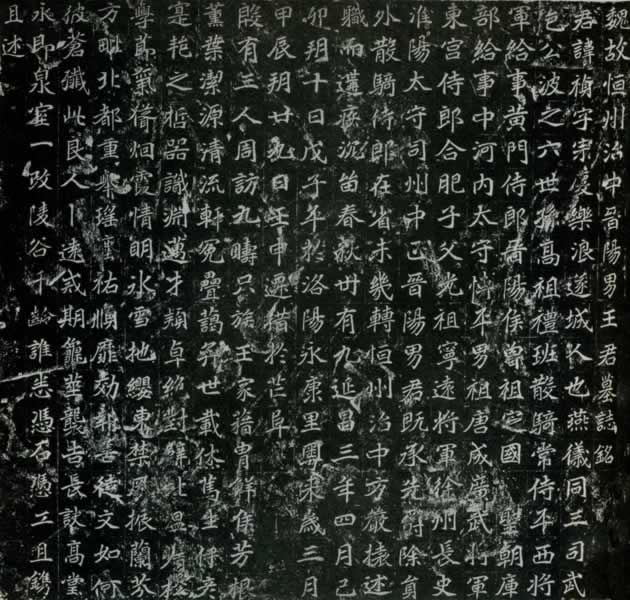 魏故恒州治中晉陽男王君墓誌銘
君諱禎字宗慶樂浪遂城人也燕儀同三司武
邑公波之六世孫高祖禮班散騎常侍平西將
軍給事黃門侍郎晉陽侯曾祖定國 聖朝庫
部給事中河內太守博平男祖唐成廣武將軍
東宮侍郎合肥子父光祖寧遠將軍徐州長史
淮陽太守司州中正晉陽男君既承先爵除員
外散騎侍郎在省未幾轉恒州治中方嚴述
職而遘疾沉笛春秋卌有九延昌三年四月己
卯朔十日戊子卒於洛陽永康里粵來歲三月
甲辰朔廿九日壬申遷措於芒阜
殷有三人周訪九疇只族王家籍冑鮮侯芳根
蕙葉潔源清流軒冕疊藹弈世載休雋生侔彥
寔之楷器識淵邁才穎卓絕對鮮溫
學節業脩烟霞情明水雪地纓東禁振蘭芬
方毗北都重舉瑤璽祐順靡効報善徒文如何
彼蒼殲此良人卜遠戒期龜筮襲吉長高堂
永即泉室一改陵谷千齡誰悉憑石憑工且鐫
且述